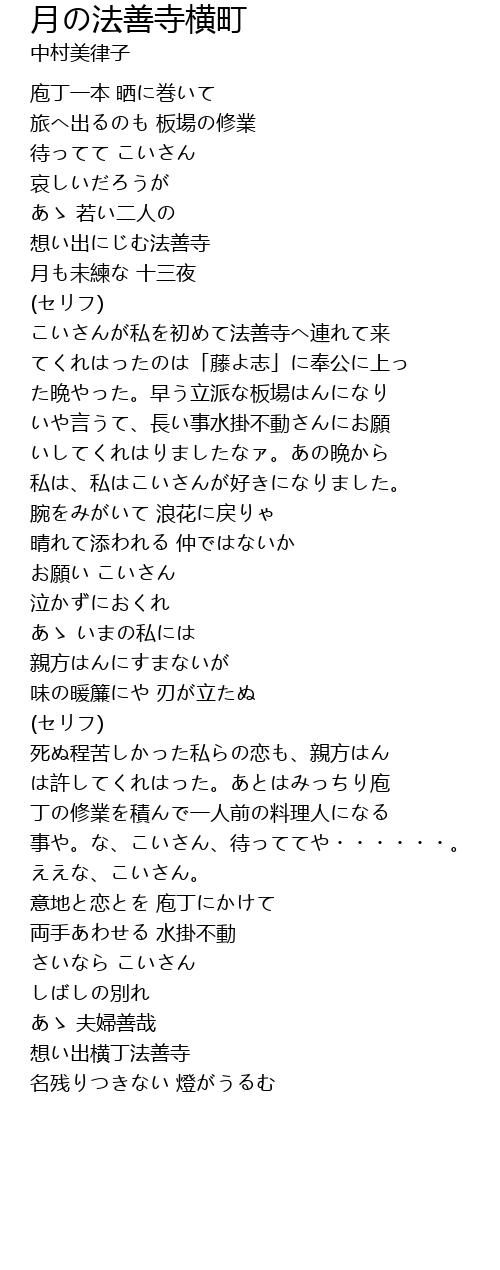 月の法善寺横町
中村美律子
庖丁一本 晒に巻いて
旅へ出るのも 板場の修業
待ってて こいさん
哀しいだろうが
あゝ 若い二人の
想い出にじむ法善寺
月も未練な 十三夜
(セリフ)
こいさんが私を初めて法善寺へ連れて来
てくれはったのは「藤よ志」に奉公に上っ
た晩やった。早う立派な板場はんになり
いや言うて、長い事水掛不動さんにお願
いしてくれはりましたなァ。あの晩から
私は、私はこいさんが好きになりました。
腕をみがいて 浪花に戻りゃ
晴れて添われる 仲ではないか
お願い こいさん
泣かずにおくれ
あゝ いまの私には
親方はんにすまないが
味の暖簾にや 刃が立たぬ
(セリフ)
死ぬ程苦しかった私らの恋も、親方はん
は許してくれはった。あとはみっちり庖
丁の修業を積んで一人前の料理人になる
事や。な、こいさん、待っててや・・・・・・。
ええな、こいさん。
意地と恋とを 庖丁にかけて
両手あわせる 水掛不動
さいなら こいさん
しばしの別れ
あゝ 夫婦善哉
想い出横丁法善寺
名残りつきない 燈がうるむ